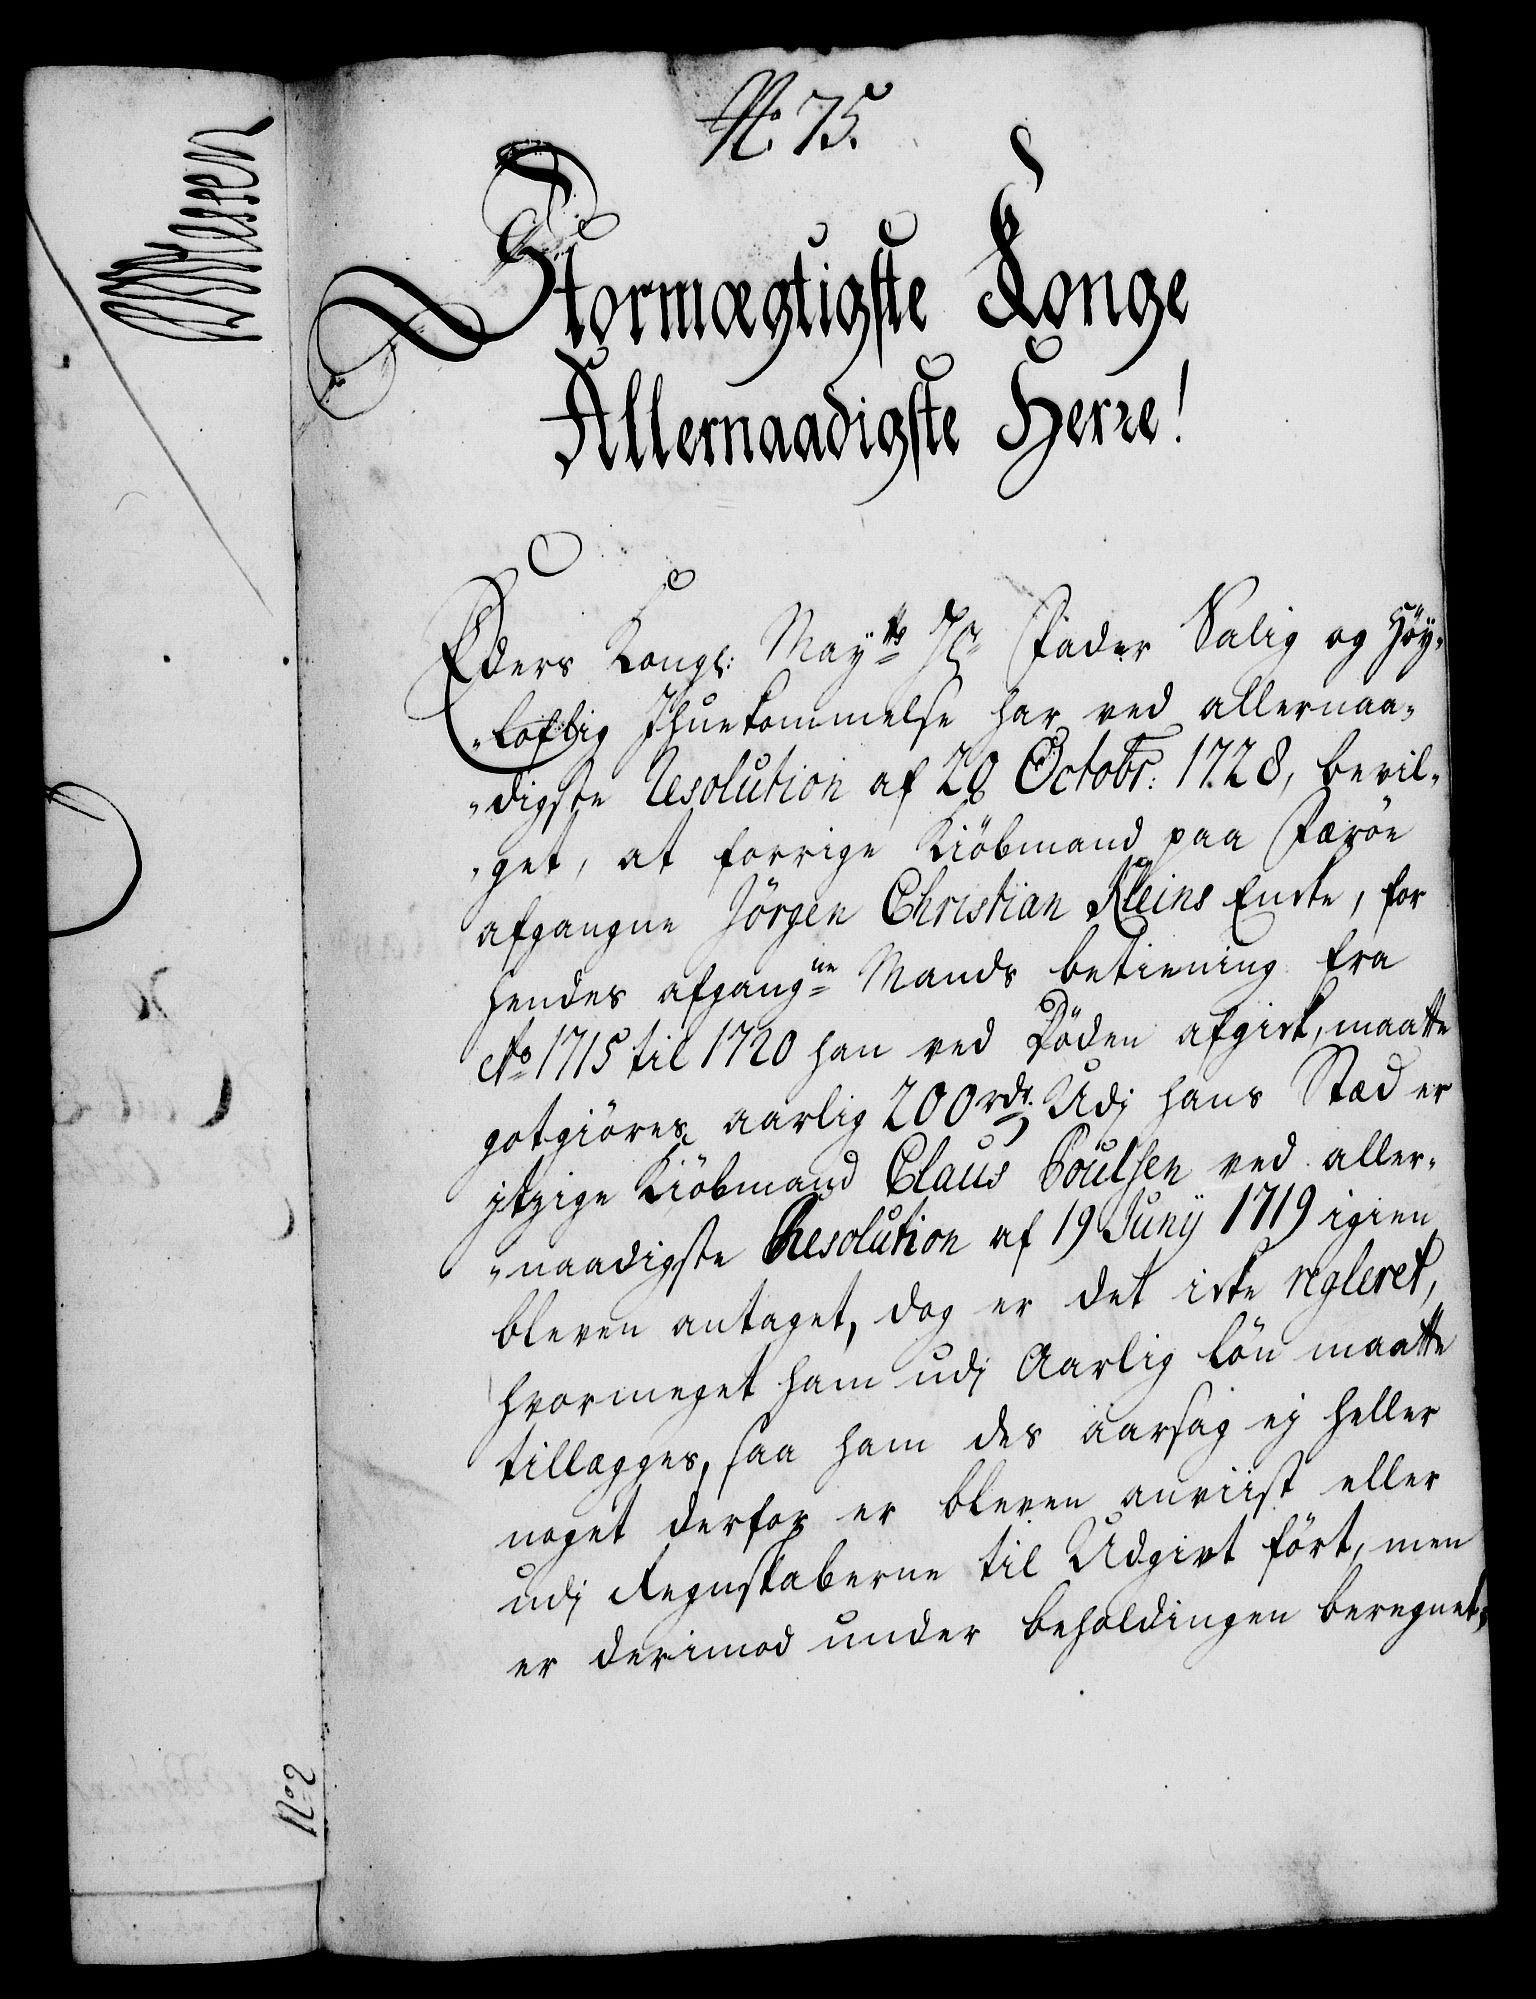 No. 75.
Stormægtigste Konge
Allernaadigste Herre!
Eders Kongl: Mayts Hr Fader Salig og Höy-
-loflig Ihuekommelse har ved allernaa-
-digste Resolution af 28 Octobr: 1728, bevil-
-get, at forrige Kiöbmand paa Færöe
afgangne Jörgen Christian Kleins Encke, for
hendes afgangne Mands betiening fra
Ao 1715 til 1720 han ved Döden afgick, maatte
gotgiöres aarlig 200 rdr. Udj hans Stæd er
itzige Kiöbmand Claus Poulsen ved aller-
-naadigste Resolution af 19 Junij 1719 igien
bleven antaget, dog er det icke regleret,
hvormeget ham udj Aarlig lön maatte
tillægges, saa ham des aarsag ej heller
noget derfor er bleven anviist eller
udj Regnskaberne til Udgivt fört, men
er derimod under beholdingen beregnet,
No 2